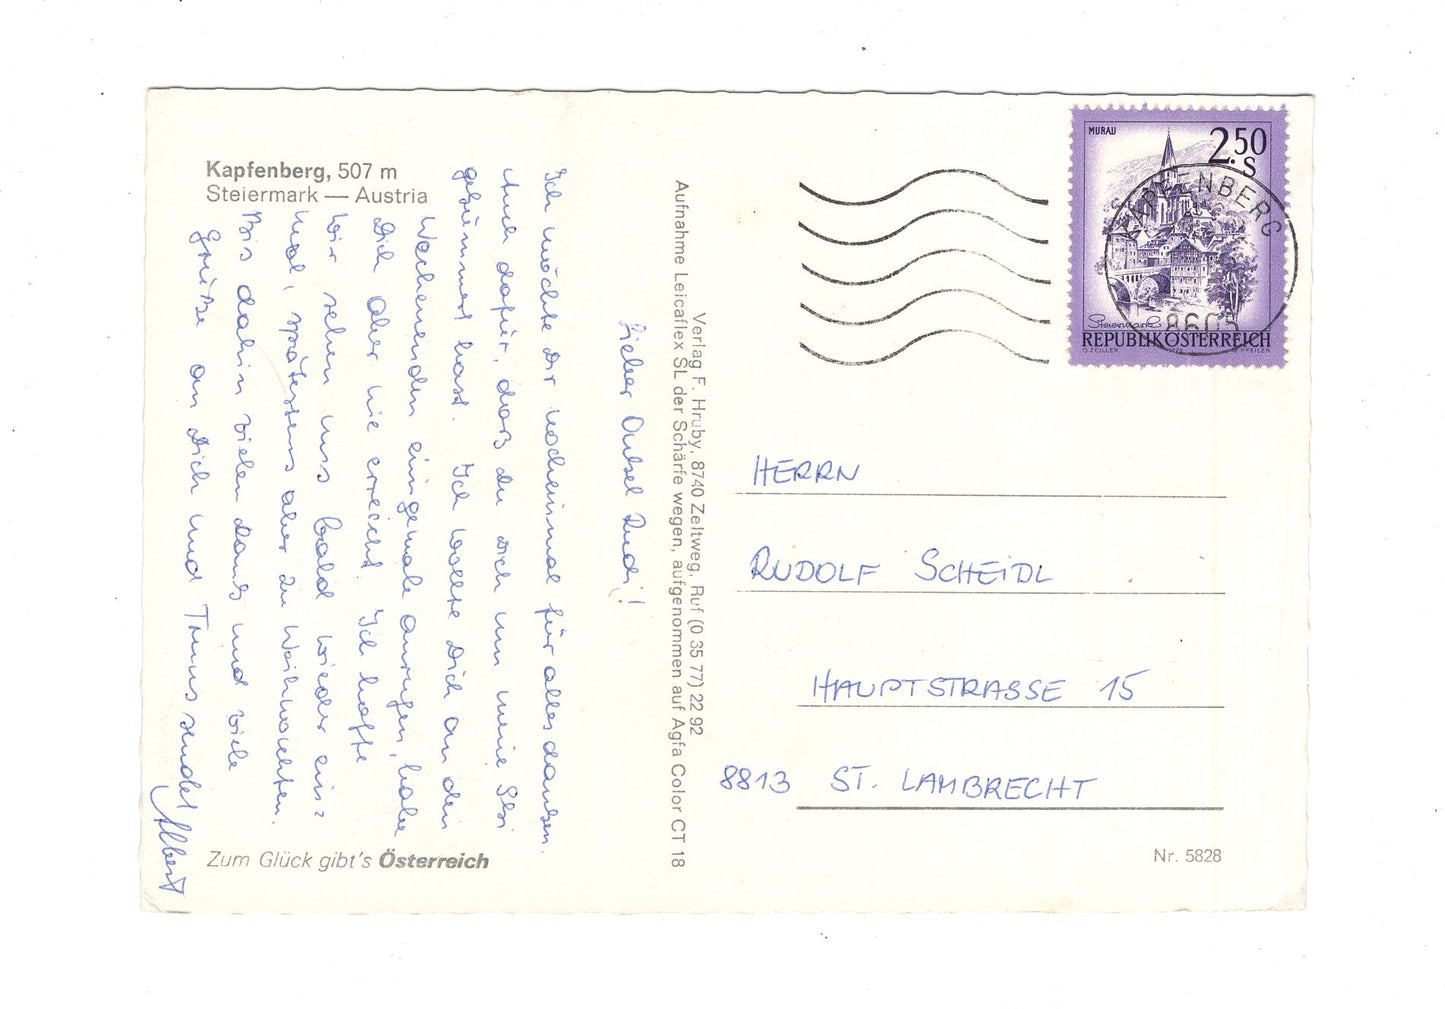 Kapfenberg, 507 m
Steiermark — Austria
Lieber Onkel Rudi!
Ich möchte Dir nocheinmal für alles danken.
Auch dafür, daß du Dich um meine Ski
gekümmert hast. Ich wollte Dich an den
Wochenenden einigemale anrufen, habe
Dich aber nie erreicht. Ich hoffe
wir sehen uns bald wieder ein=
mal, spätestens aber zu Weihnachten.
Bis dahin vielen Dank und viele
Grüße an Dich und sendet
Albert
Zum Glück gibt's Österreich
Verlag F. Hruby, 8740 Zeltweg, Ruf (0 35 77) 22 92
Aufnahme Leicaflex SL der Schärfe wegen, aufgenommen auf Agfa Color CT 18
MURAU
2.50
S
KAPFENBERG
8605
Steiermark
REPUBLIK ÖSTERREICH
O.ZEILLER
PFEILER
HERRN
RUDOLF SCHEIDL
HAUPTSTRASSE 15
8813 ST. LAMBRECHT
Nr. 5828